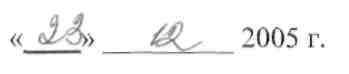 «23» 12 2005 г.